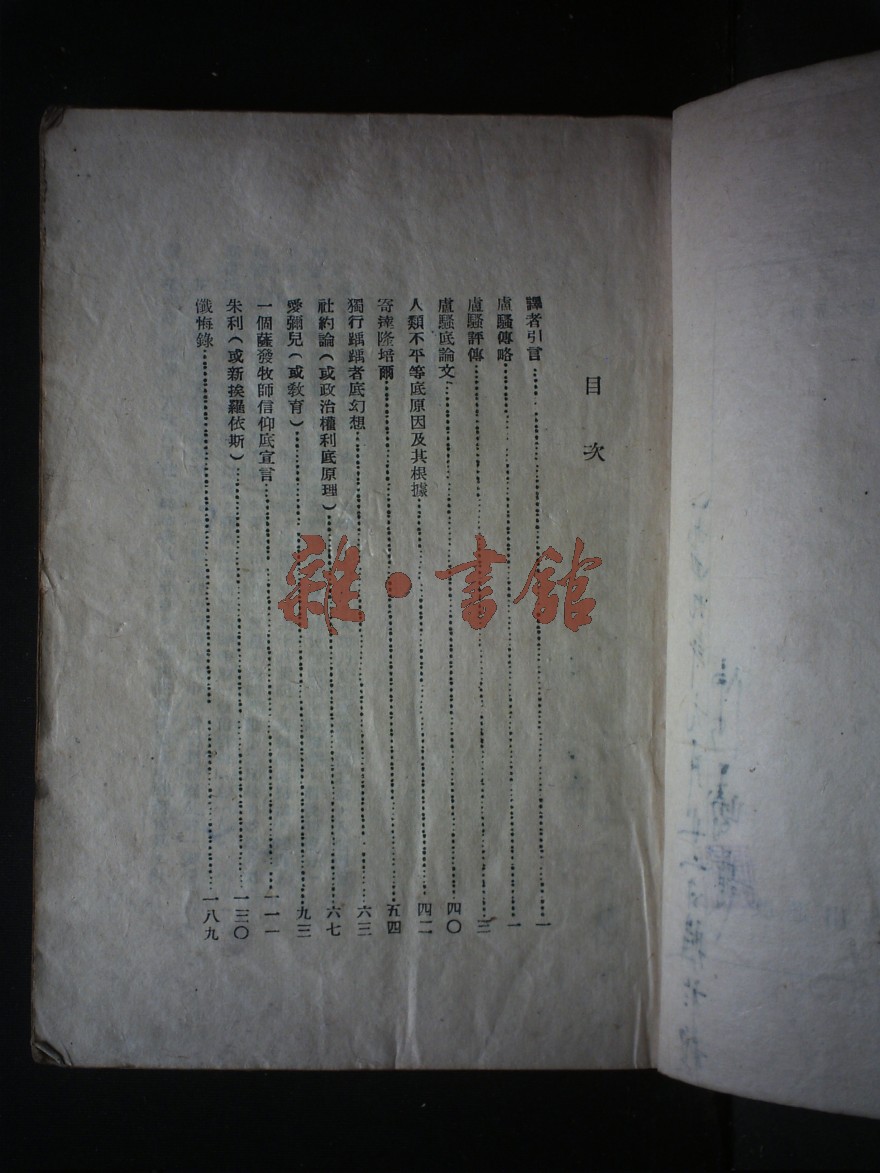 目次
譯者引言……一
盧騷傳略……一
盧騷評傳……三
盧騷底論文……四〇
人類不平等底原因及其根據……四二
寄達隆培爾……五四
獨行踽踽者底幻想……六三
社約論（或政治權利底原理）……六七
愛彌兒（或教育）……九三
一個薩發牧師信仰底宣言……一一一
朱利（或新挨羅依斯）……一三〇
懺悔錄……一八九
雜·書館